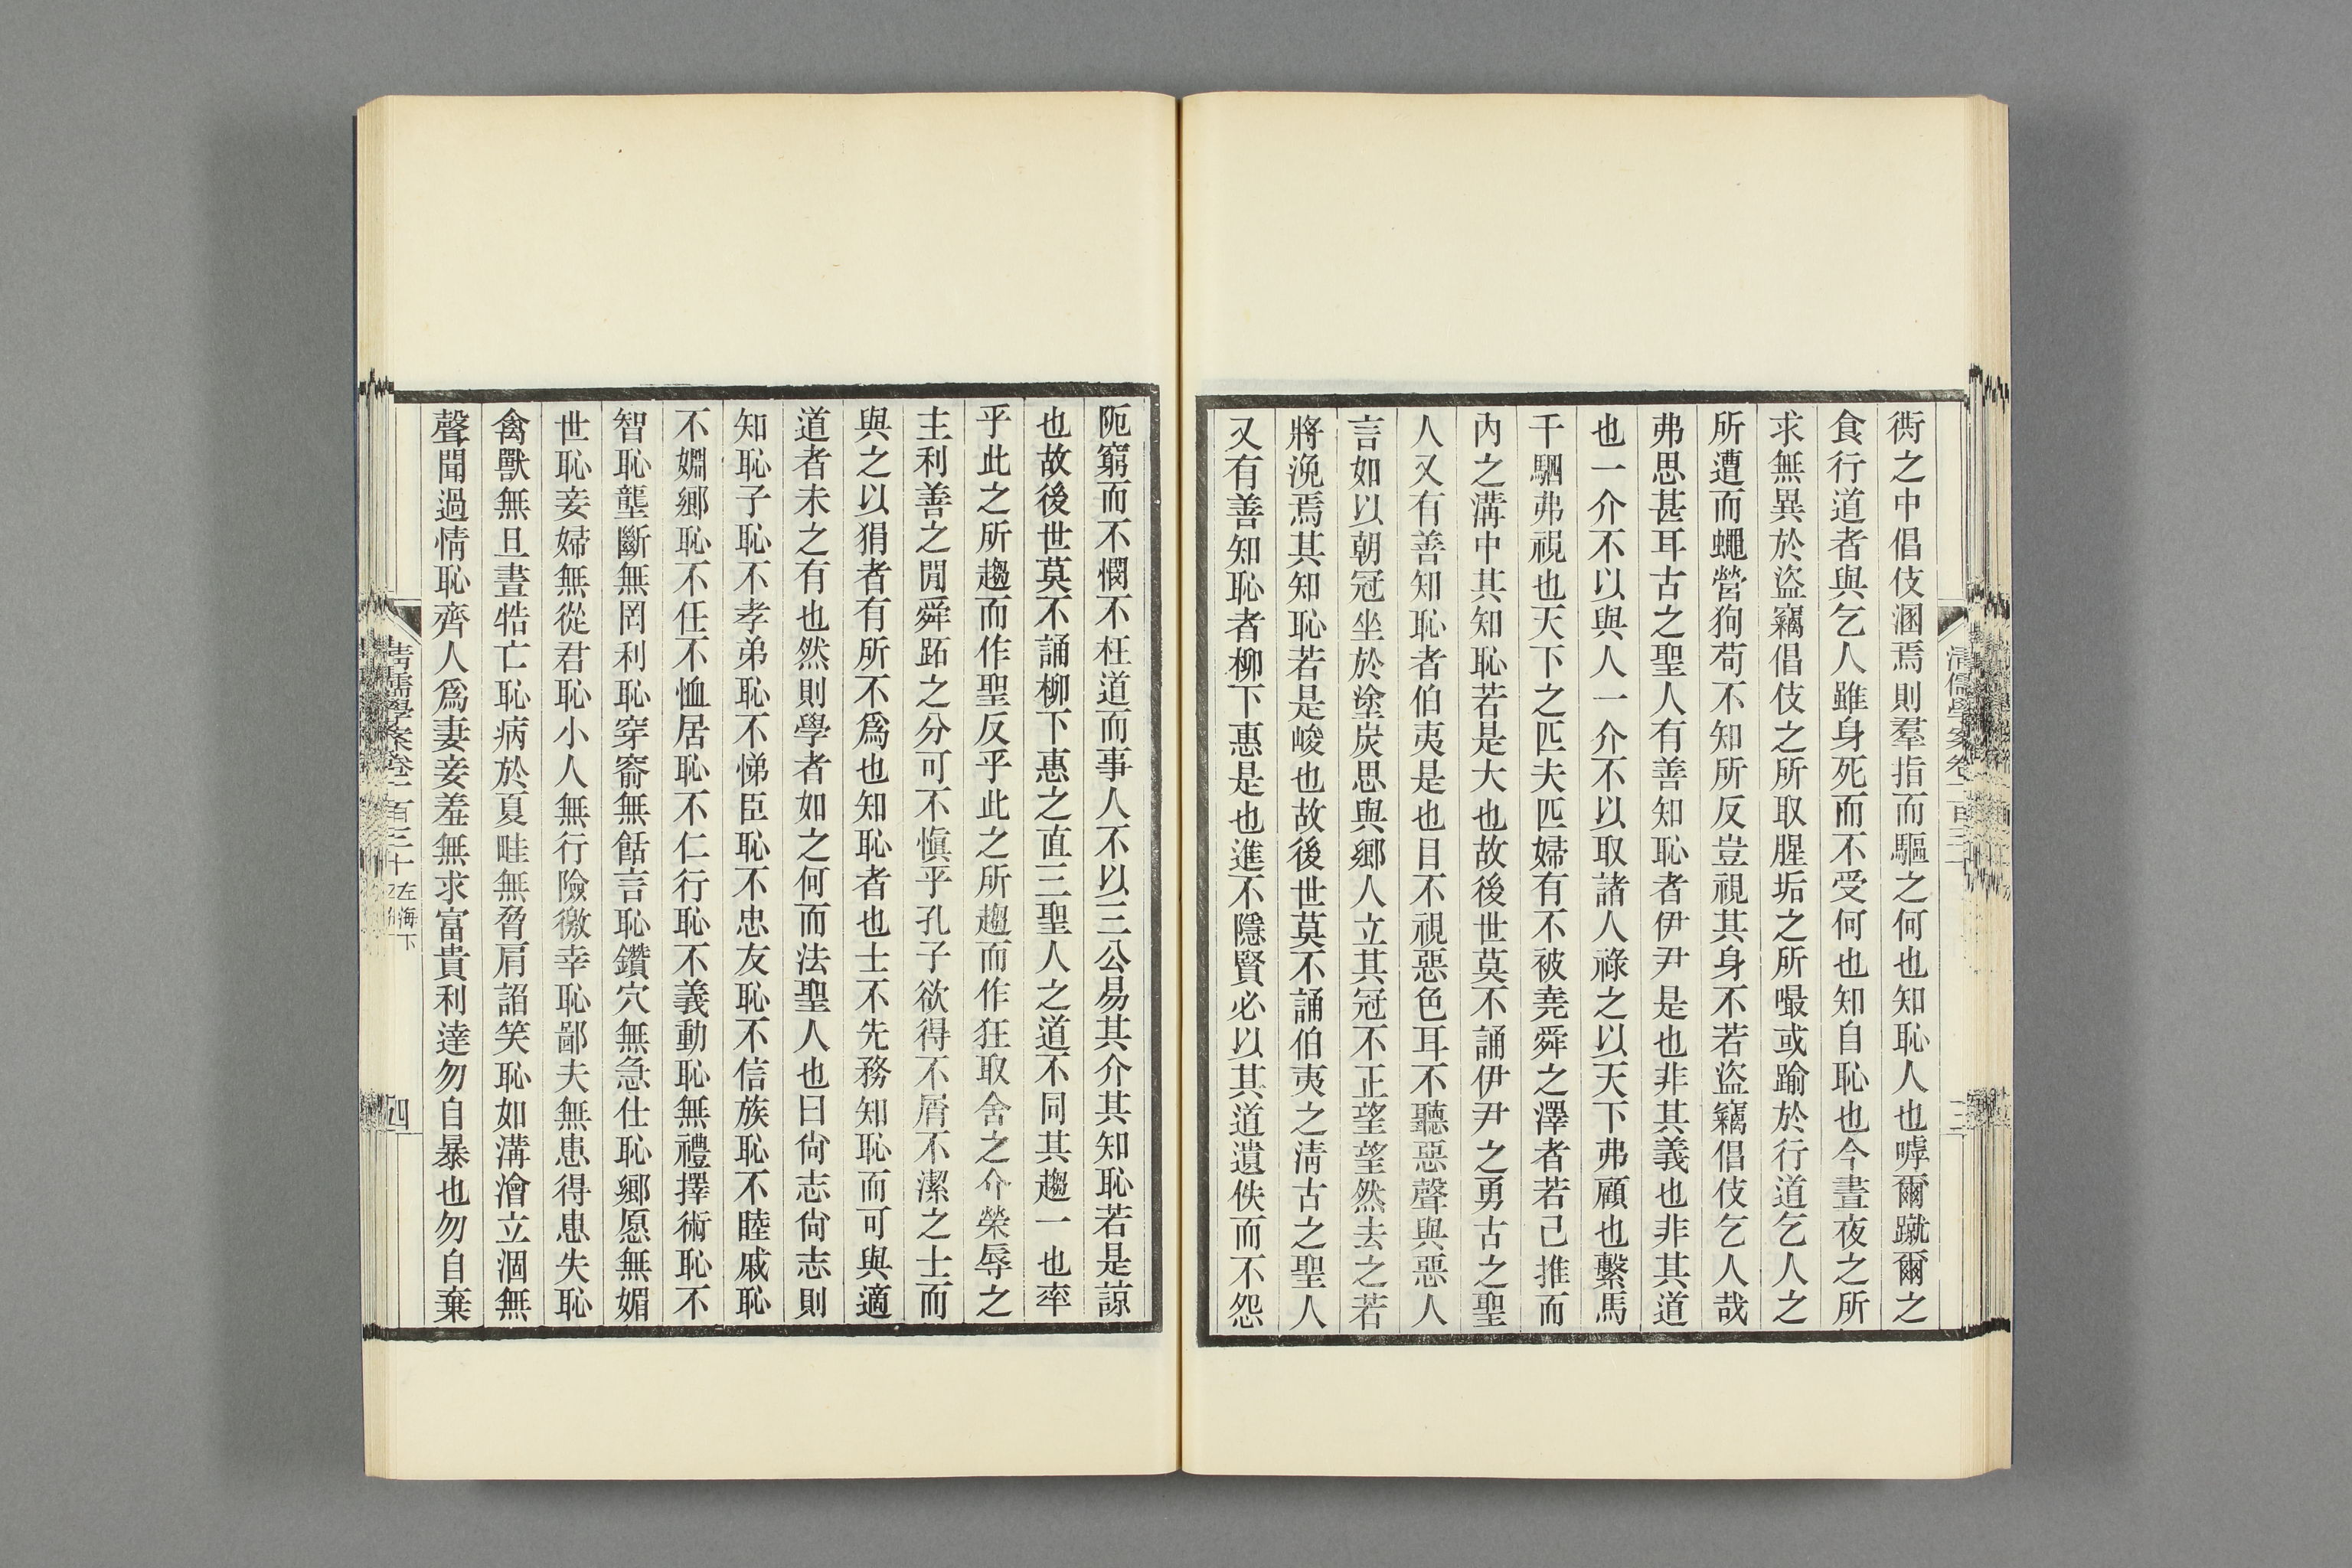 衖之中倡伎溷焉則羣指而驅之何也知恥人也嘑爾蹴爾之
食行道者與乞人雖身死而不受何也知自恥也今晝夜之所
求無異於盜竊倡伎之所取腥垢之所嘬或踰於行道乞人之
所遭而蠅營狗苟不知所反豈視其身不若盜竊倡伎乞人哉
弗思甚耳古之聖人有善知恥者伊尹是也非其義也非其道
也一介不以與人一介不以取諸人祿之以天下弗顧也繫馬
千駟弗視也天下之匹夫匹婦有不被堯舜之澤者若己推而
內之溝中其知恥若是大也故後世莫不誦伊尹之勇古之聖
人又有善知恥者伯夷是也目不視惡色耳不聽惡聲與惡人
言如以朝冠坐於塗炭思與鄉人立其冠不正望望然去之若
將浼焉其知恥若是峻也故後世莫不誦伯夷之淸古之聖人
又有善知恥者柳下惠是也進不隱賢必以其道遺佚而不怨
阨窮而不憫不枉道而事人不以三公易其介其知恥若是諒
也故後世莫不誦柳下惠之直三聖人之道不同其趨一也率
乎此之所趨而作聖反乎此之所趨而作狂取舍之介榮辱之
主利善之閒舜跖之分可不愼乎孔子欲得不屑不潔之士而
與之以狷者有所不爲也知恥者也士不先務知恥而可與適
道者未之有也然則學者如之何而法聖人也曰尙志尙志則
知恥子恥不孝弟恥不悌臣恥不忠友恥不信族恥不睦戚恥
不婣鄉恥不任不恤居恥不仁行恥不義動恥無禮擇術恥不
智恥壟斷無罔利恥穿窬無餂言恥鑽穴無急仕恥鄉愿無媚
世恥妾婦無從君恥小人無行險徼幸恥鄙夫無患得患失恥
禽獸無旦晝牿亡恥病於夏畦無脅肩諂笑恥如溝澮立涸無
聲聞過情恥齊人爲妻妾羞無求富貴利達勿自暴也勿自棄
淸儒學案卷一百三十 左海下
四